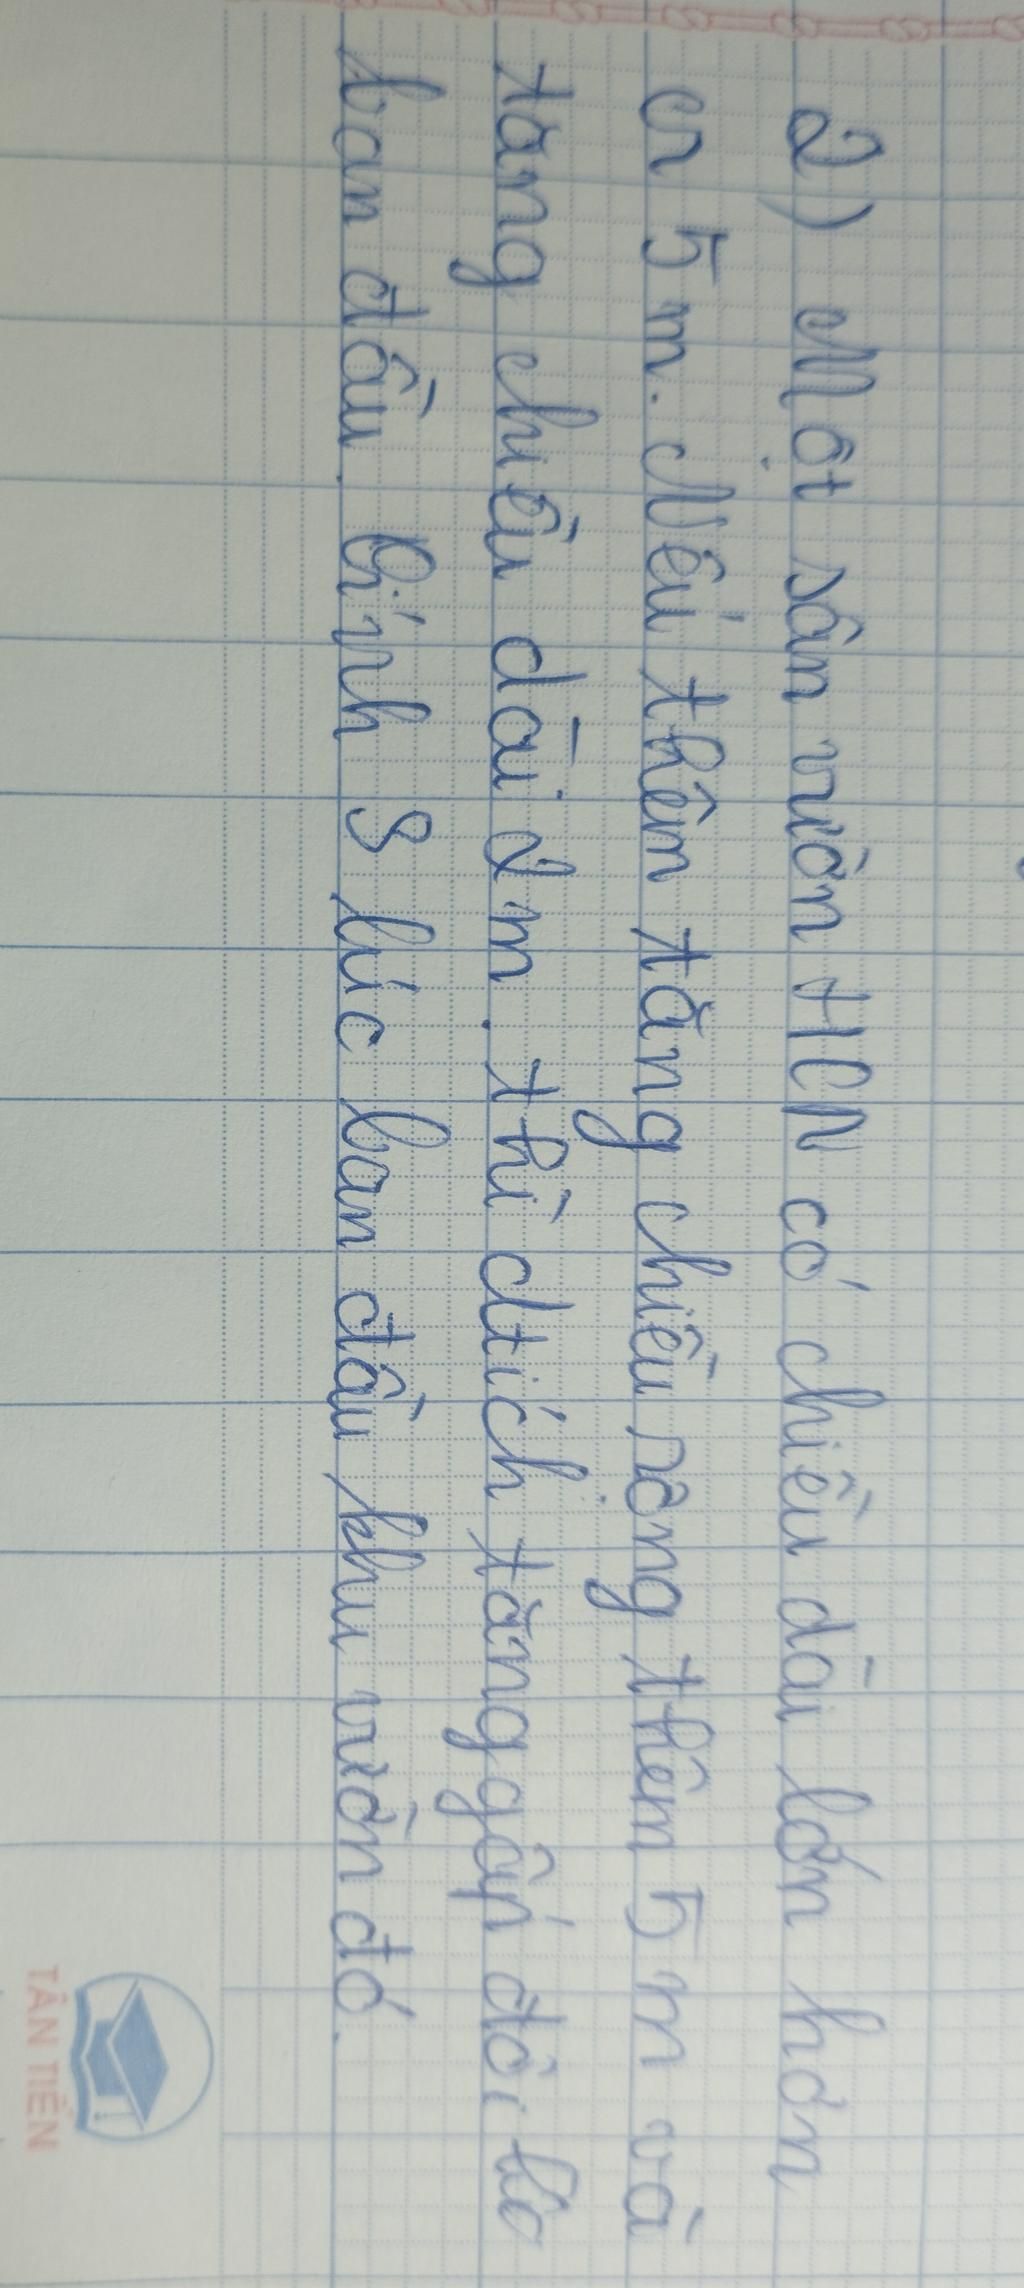 2) Một sân vườn HCN có chiều dài lớn hơn
cr 5 m. Nếu thêm tăng chiều rộng thêm 5 m và
tăng chiều dài 2m. thì dtích tăng gấp đôi so
ban đầu. Tính S lúc ban đầu khu vườn đó.
TÂN TIẾN